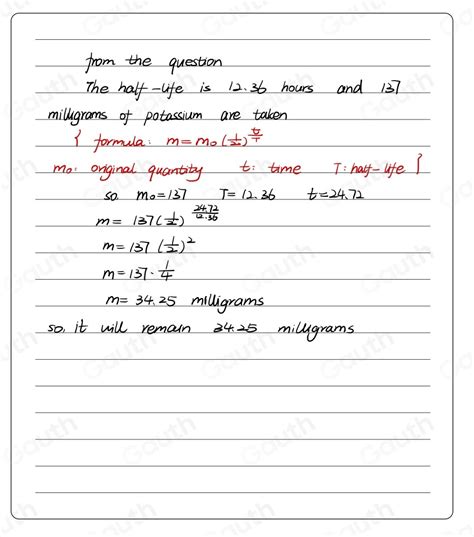 from the question
The half-life is 12.36 hours and 137
milligrams of potassium are taken
{ formula: m = m₀ (1/2)^(t/T)
m₀: original quantity t: time T: half-life }
so m₀=137 T=12.36 t=24.72
m = 137(1/2)^(24.72/12.36)
m = 137 (1/2)²
m = 137 · 1/4
m = 34.25 milligrams
so, it will remain 34.25 milligrams